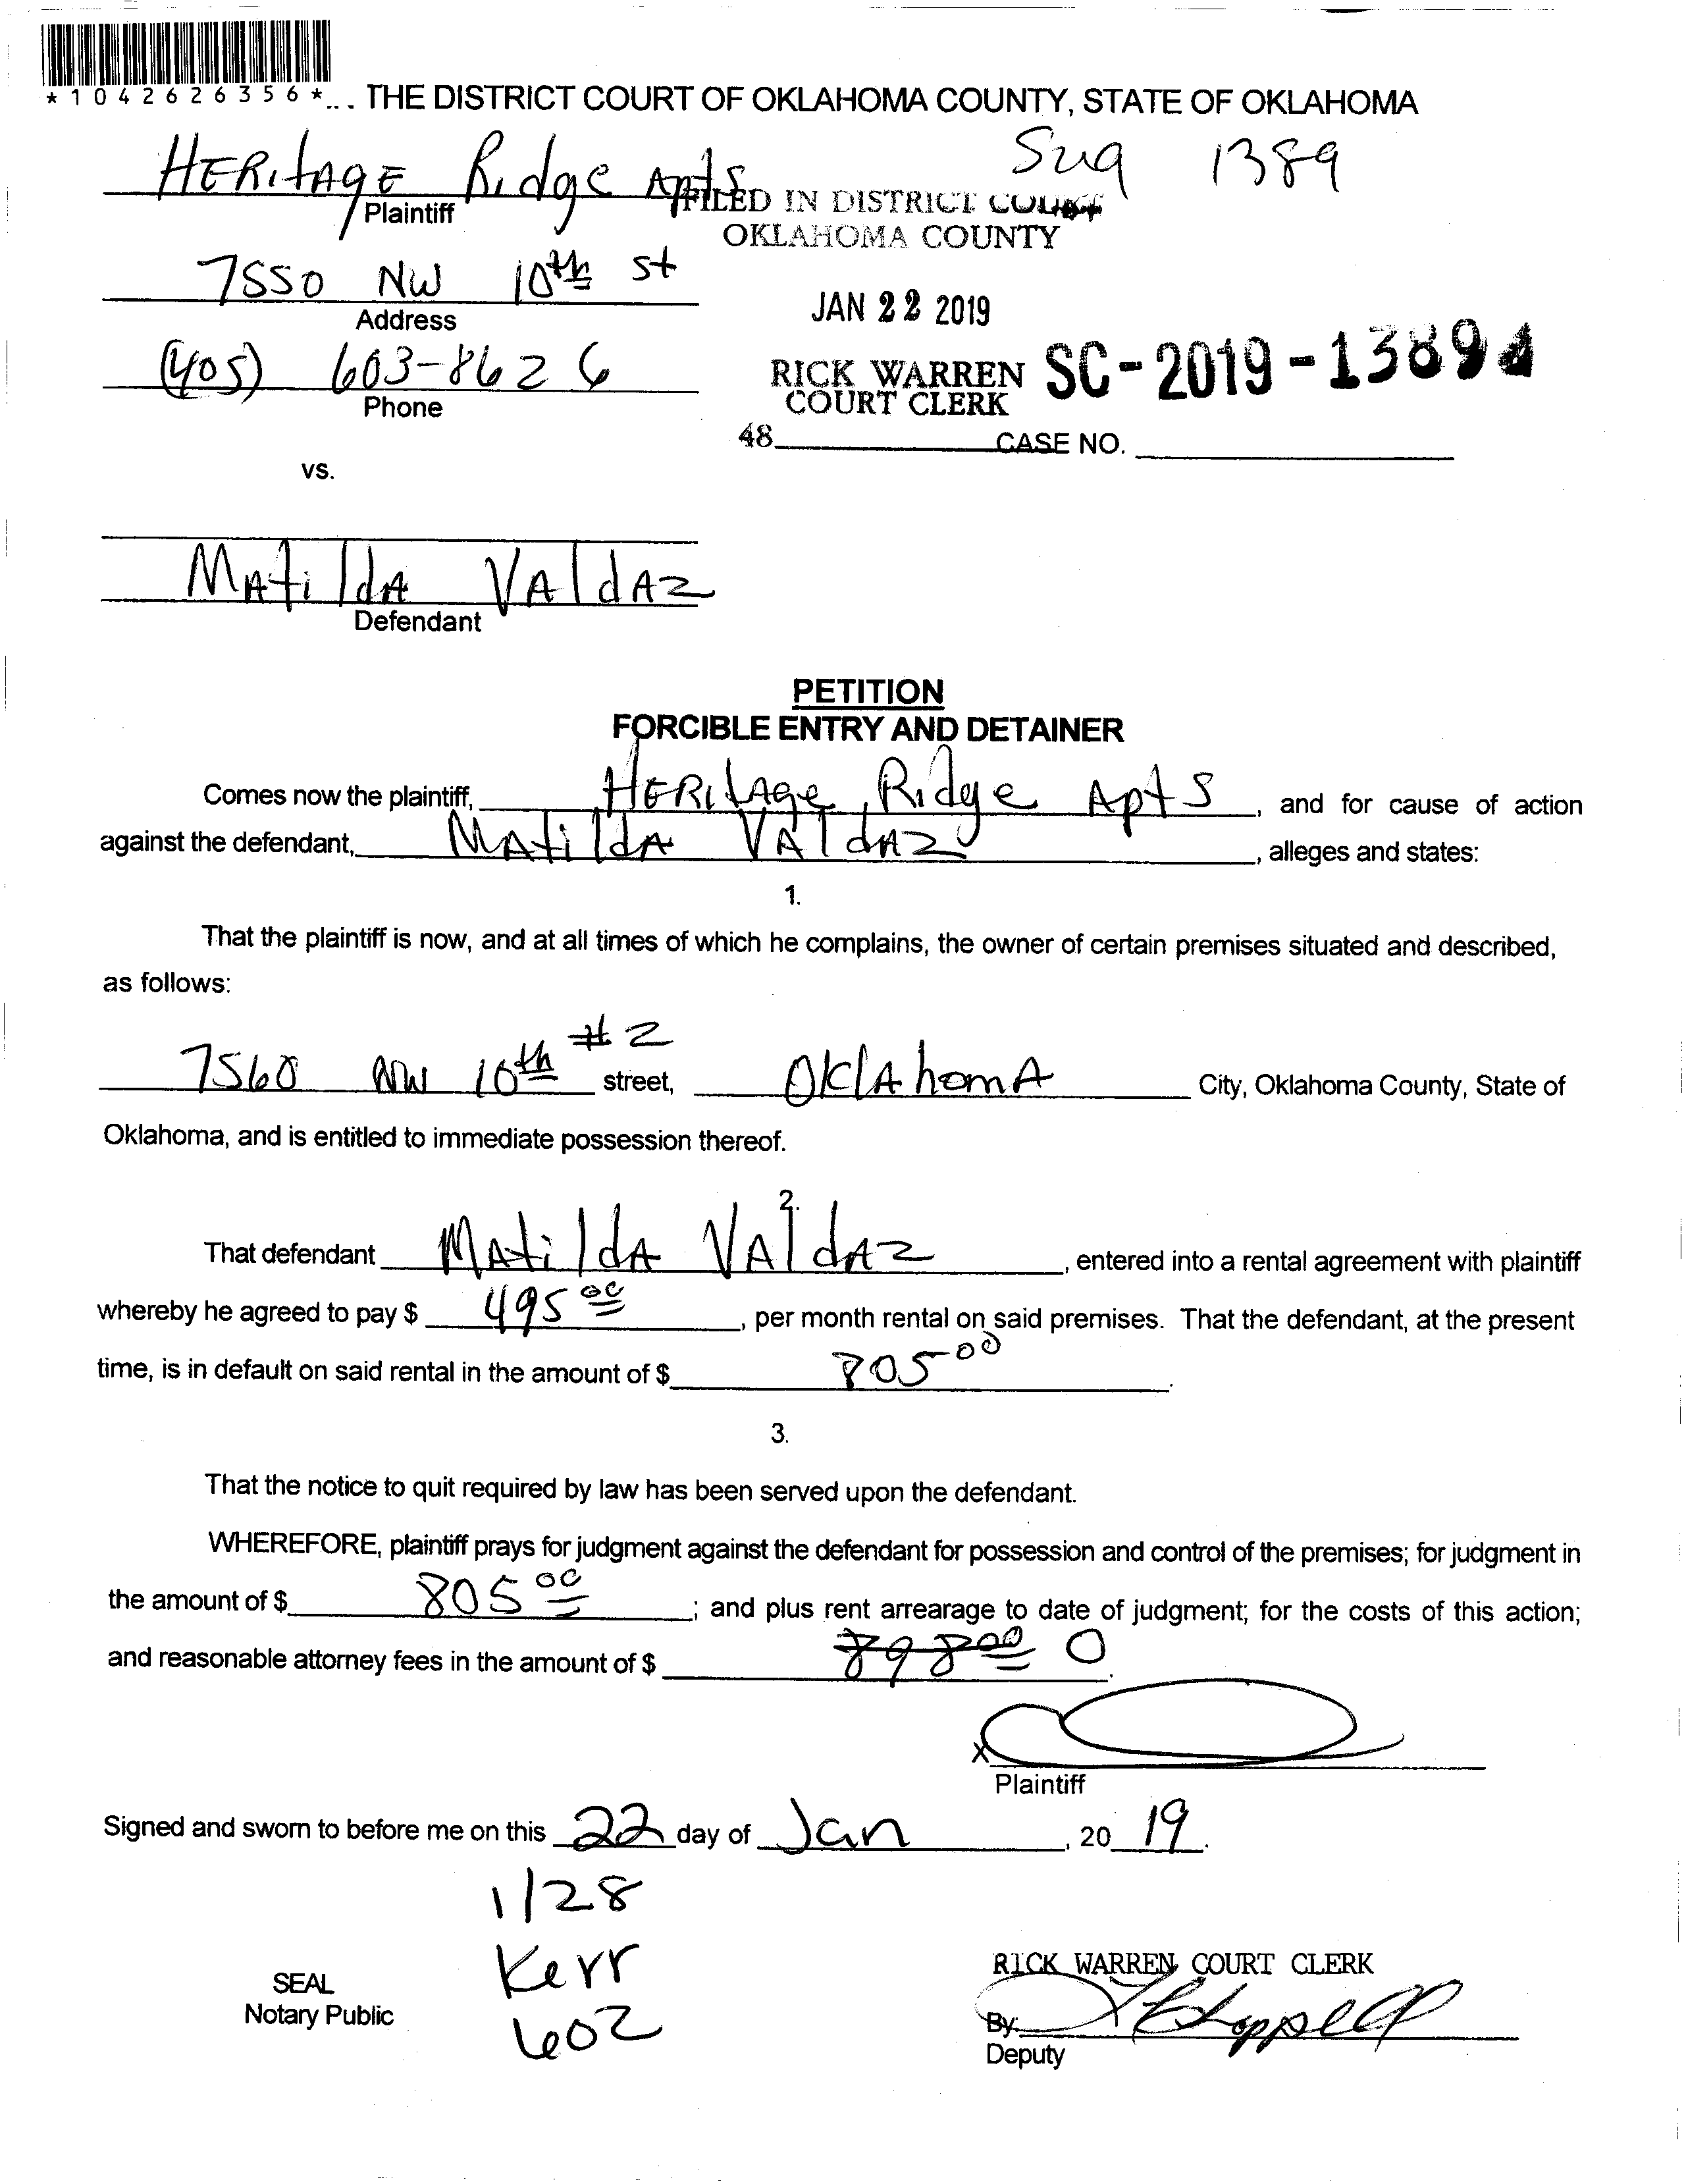 *1042626356*... THE DISTRICT COURT OF OKLAHOMA COUNTY, STATE OF OKLAHOMA
HERitAgE Ridge Apts 1389
Plaintiff
FILED IN DISTRICT COURT
OKLAHOMA COUNTY
7550 NW 10th st
Address
JAN 22 2019
(405) 603-8626
Phone
RICK WARREN
COURT CLERK
SC-2019-1389
48 CASE NO.
vs.
MAtildA VAldAz
Defendant
PETITION
FORCIBLE ENTRY AND DETAINER
Comes now the plaintiff, HERitAge Ridge Apts, and for cause of action
against the defendant, MAtildA VAldAz, alleges and states:
1.
That the plaintiff is now, and at all times of which he complains, the owner of certain premises situated and described,
as follows:
7560 NW 10th #2 street, OklAhomA City, Oklahoma County, State of
Oklahoma, and is entitled to immediate possession thereof.
2.
That defendant MAtildA VAldAz, entered into a rental agreement with plaintiff
whereby he agreed to pay $ 495 00, per month rental on said premises. That the defendant, at the present
time, is in default on said rental in the amount of $ 805 00.
3.
That the notice to quit required by law has been served upon the defendant.
WHEREFORE, plaintiff prays for judgment against the defendant for possession and control of the premises; for judgment in
the amount of $ 805 00; and plus rent arrearage to date of judgment; for the costs of this action;
and reasonable attorney fees in the amount of $ 898 00 0.
X
Plaintiff
Signed and sworn to before me on this 22 day of Jan, 20 19.
1/28
Kerr
602
SEAL
Notary Public
RICK WARREN, COURT CLERK
By:
Deputy